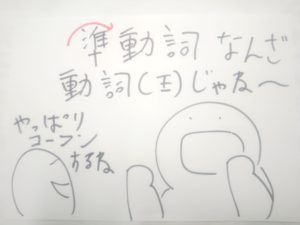 準動詞 なんざ
動詞(王)じゃね〜
やっぱり
コーフン
するね